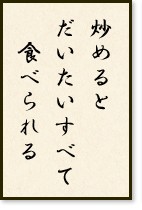 炒めると
だいたいすべて
食べられる